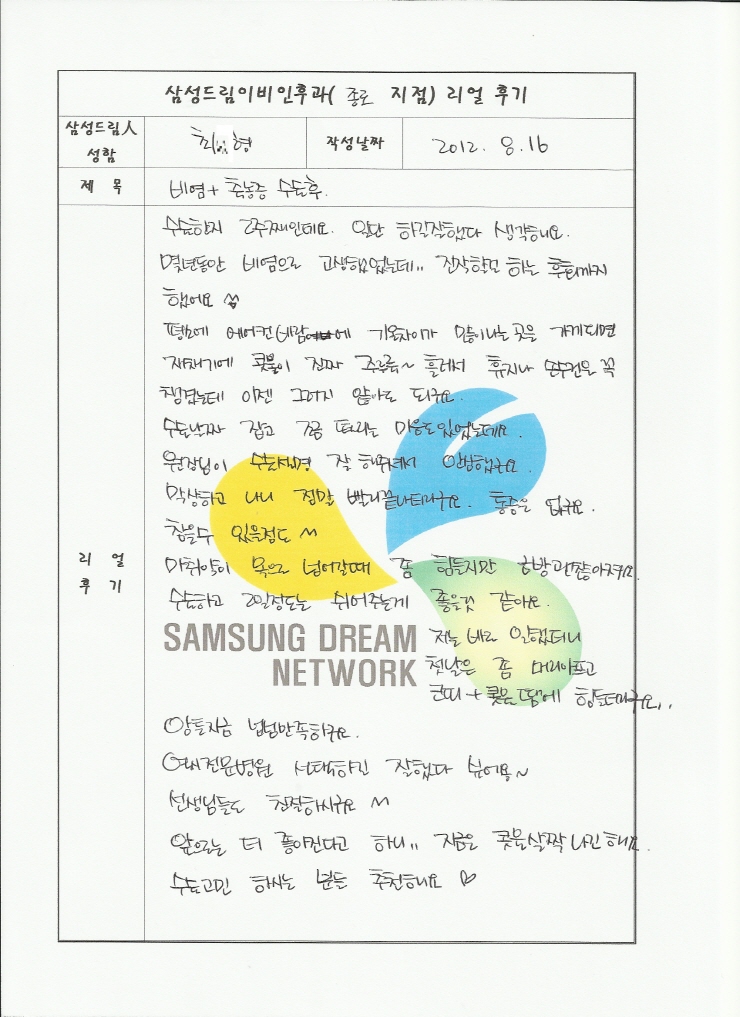 삼성드림이비인후과( 종로 지점) 리얼 후기
삼성드림人 성함
최 형
작성날짜
2012. 8. 16
제 목
비염+ 축농증 수술후.
리 얼 후 기
수술한지 2주째인데요. 일단 하길잘했다 생각해요.
몇년동안 비염으로 고생했었는데.. 진작할껄 하는 후회까지
했어요 ^^
평소에 에어컨 바람에 기온차이가 많이나는 곳을 가게되면
재채기에 콧물이 진짜 주루륵~ 흘러서 휴지나 손수건은 꼭
챙겼는데 이젠 그러지 않아도 되구요.
수술날짜 잡고 쫌 떨리는 마음도있었는데요.
원장님이 수술설명 잘 해주셔서 안심했구요.
막상하고 나니 정말 빨리끝나더라구요. 통증은 있구요.
참을수 있을정도 ^^
마취약이 목으로 넘어갈때 좀 힘들지만 금방괜찮아져요.
수술하고 2일정도는 쉬어주는게 좋을것 같아요.
SAMSUNG DREAM
NETWORK
저는 바로 일했더니
첫날은 좀 머리아프고
코피 + 콧물 땜에 힘들더라구요..
암튼지금 넘넘만족하구요.
역시전문병원 선택하길 잘했다 싶어용~
선생님들도 친절하시구요 ^^
앞으로는 더 좋아진다고 하니.. 지금은 콧물살짝 나긴해요.
수술고민 하시는 분들 추천해요 ♡